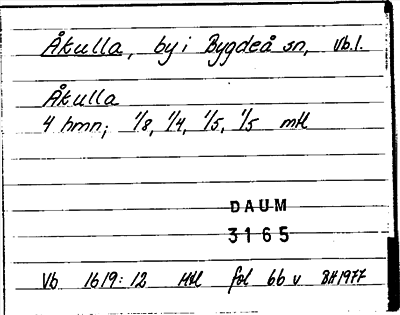 Åkulla, by i Bygdeå sn, Vb.l.
Åkulla
4 hmn; 1/8, 1/4, 1/5, 1/5 mtl
DAUM
3165
Vb 1619:12 Mtl fol 66 v BH1977